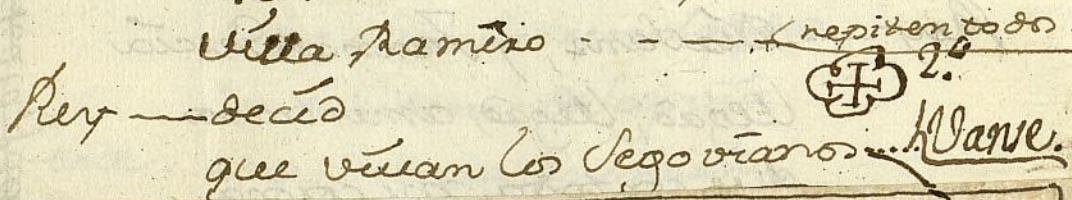 viva Ramiro - - — repiten todos
2.ª
Rey — decid
que vivan los Segovianos... Vanse.